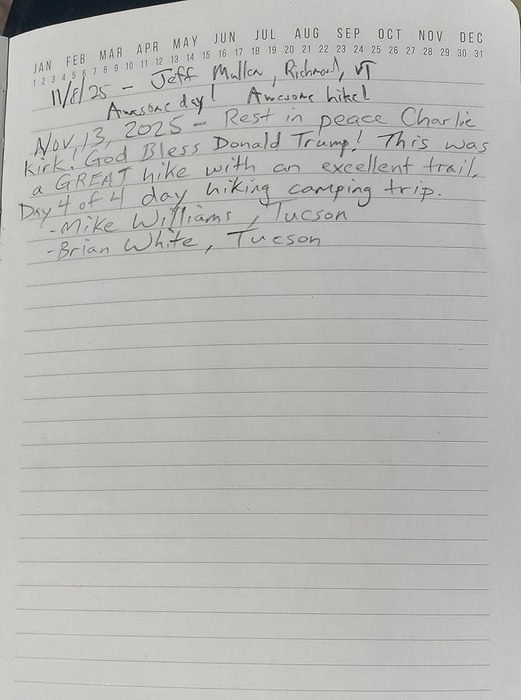 JAN FEB MAR APR MAY JUN JUL AUG SEP OCT NOV DEC
1 2 3 4 5 6 7 8 9 10 11 12 13 14 15 16 17 18 19 20 21 22 23 24 25 26 27 28 29 30 31
11/8/25 - Jeff Mullen, Richmond, VT
Awesome day! Awesome hike!
Nov, 13, 2025 - Rest in peace Charlie
Kirk! God Bless Donald Trump! This was
a GREAT hike with an excellent trail.
Day 4 of 4 day hiking camping trip.
-Mike Williams, Tucson
-Brian White, Tucson